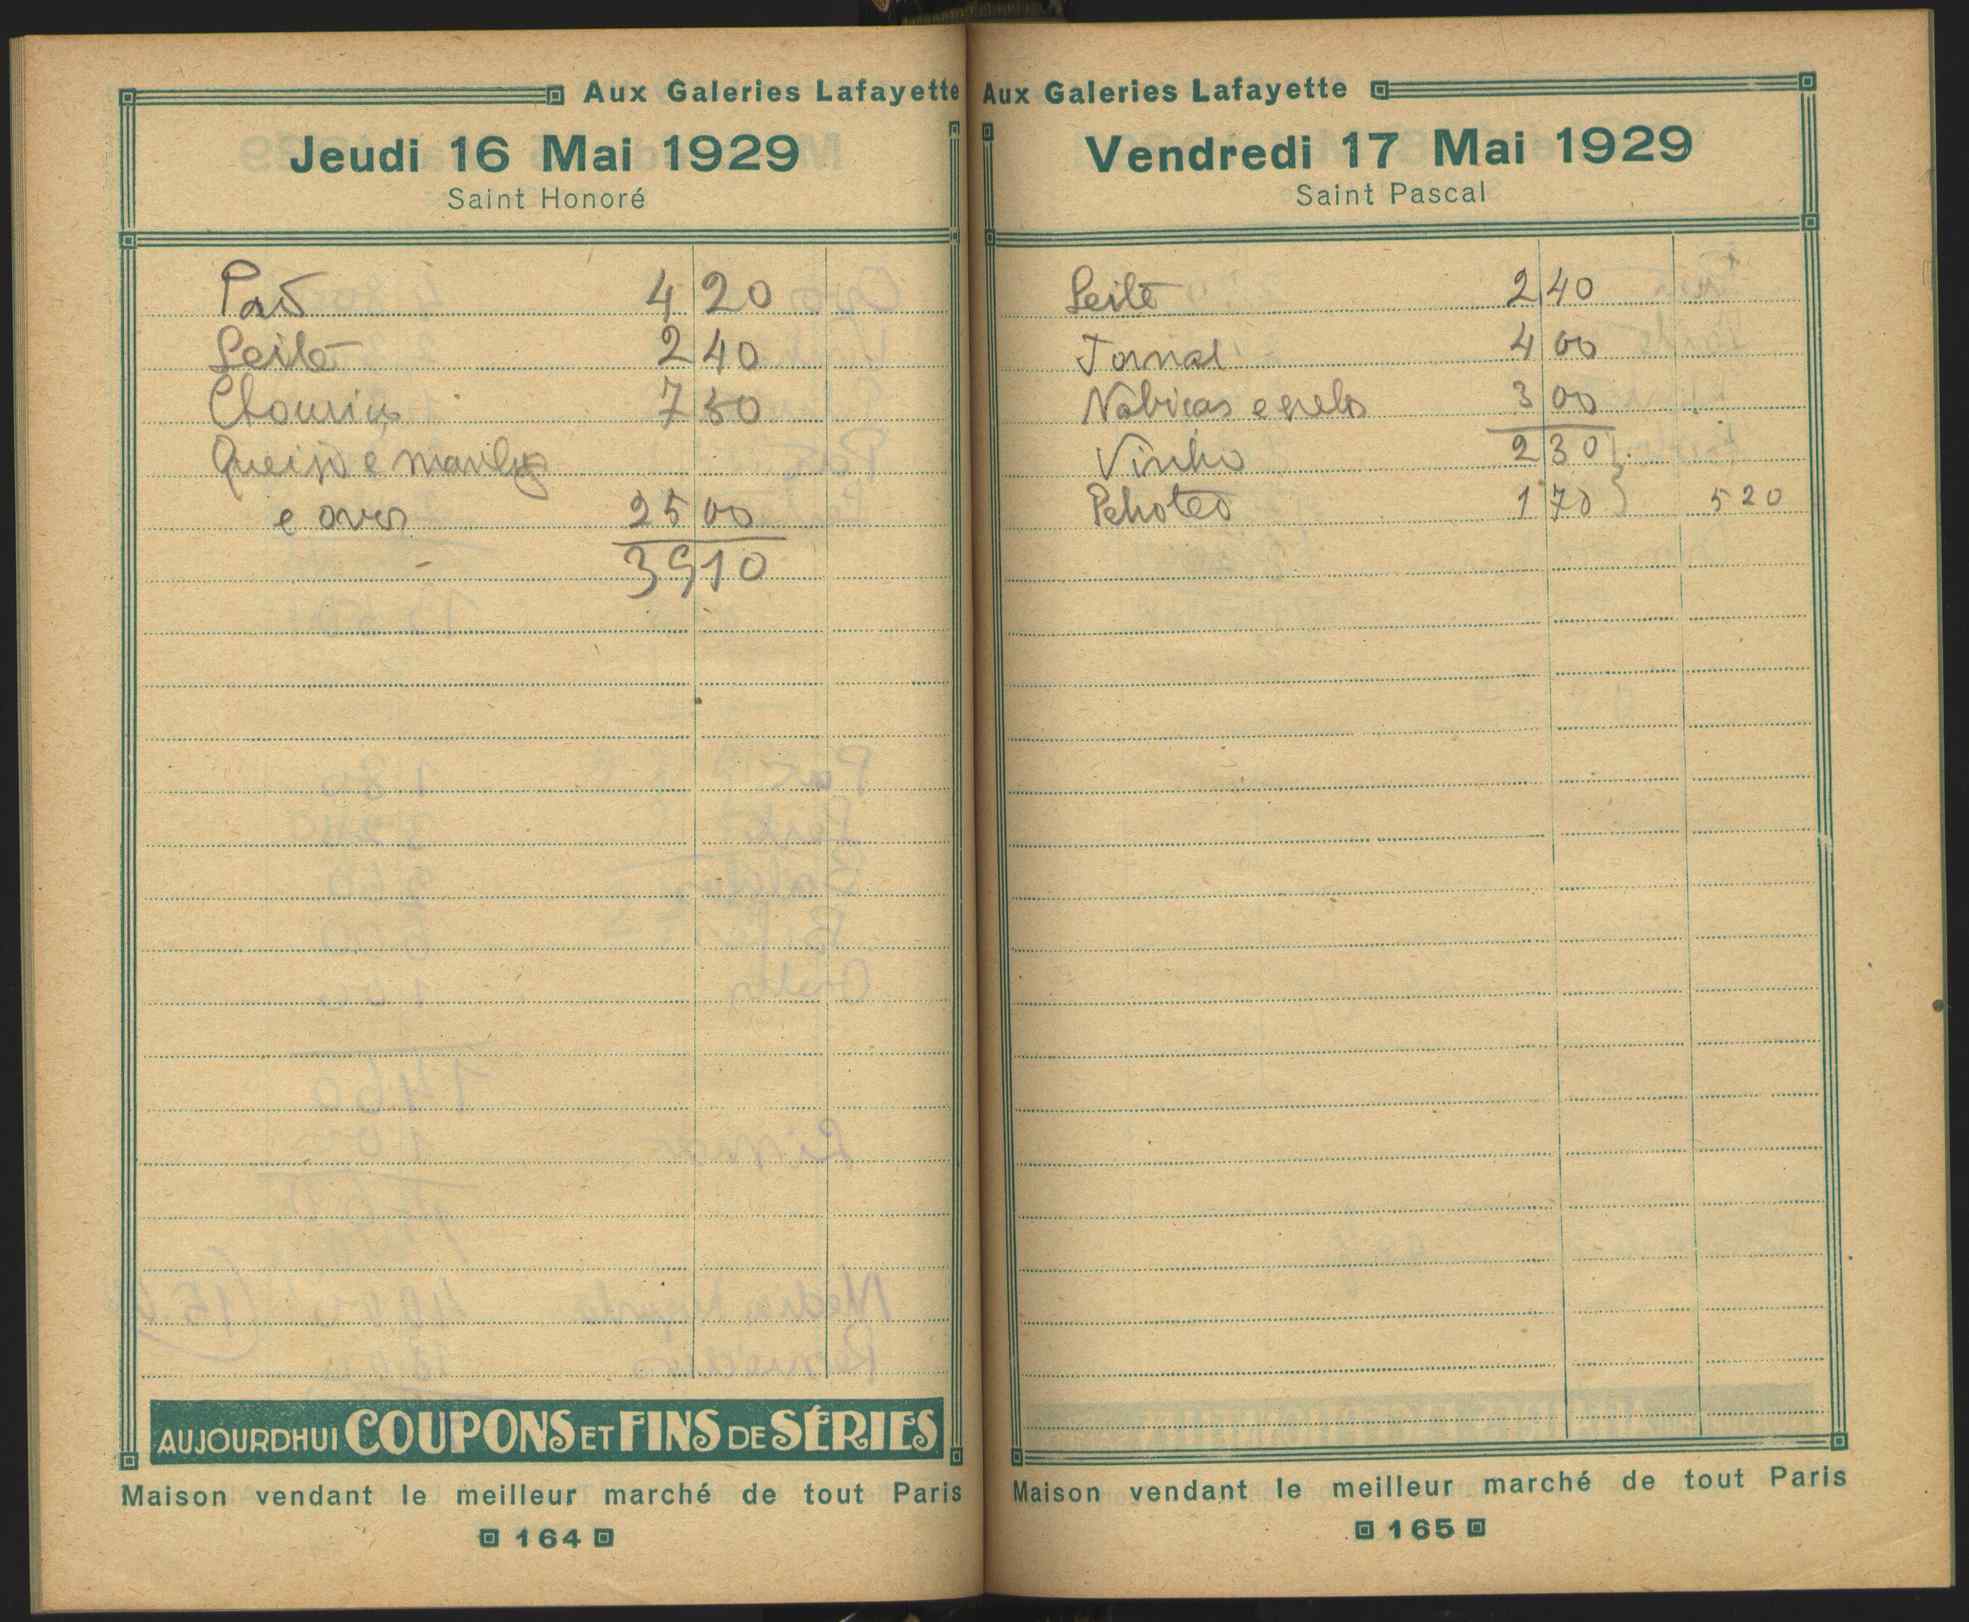 Aux Galeries Lafayette
Jeudi 16 Mai 1929
Saint Honoré
Pão 4 20
Leite 2 40
Chouriço 7 50
Queijo e manteiga
e ovos 25 00
39 10
AUJOURDHUI COUPONS ET FINS DE SÉRIES
Maison vendant le meilleur marché de tout Paris
164
Aux Galeries Lafayette
Vendredi 17 Mai 1929
Saint Pascal
Leite 2 40
Jornal 4 00
Nabiças e grelos 3 00
Vinho 2 30
1 70 5 20
Maison vendant le meilleur marché de tout Paris
165